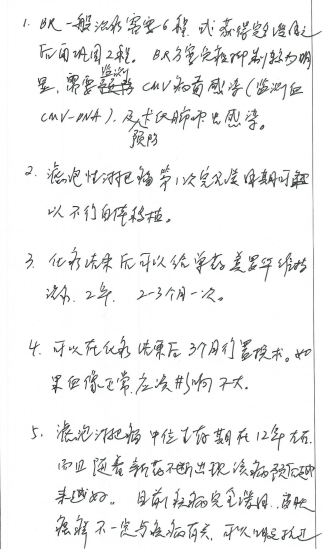 1. BR一般治疗需要6程, 或获得完全缓解之
后再巩固2程。BR方案完程抑制较为明
显, 需要监测CMV病毒感染(监测血
CMV-DNA), 及预防卡氏肺孢虫感染。
2. 滤泡性淋巴瘤第1次完全缓解期可
以不行自体移植。
3. 化疗结束后可以给单药美罗华维持
治疗, 2年, 2-3个月一次。
4. 可以在化疗结束后3个月行置换术。如
果血像正常, 应该影响不大。
5. 滤泡淋巴瘤中位生存期在12年左右,
而且随着新药不断出现该病预后越
来越好。目前疾病完全缓解,
瘙痒不一定与疾病有关, 可以